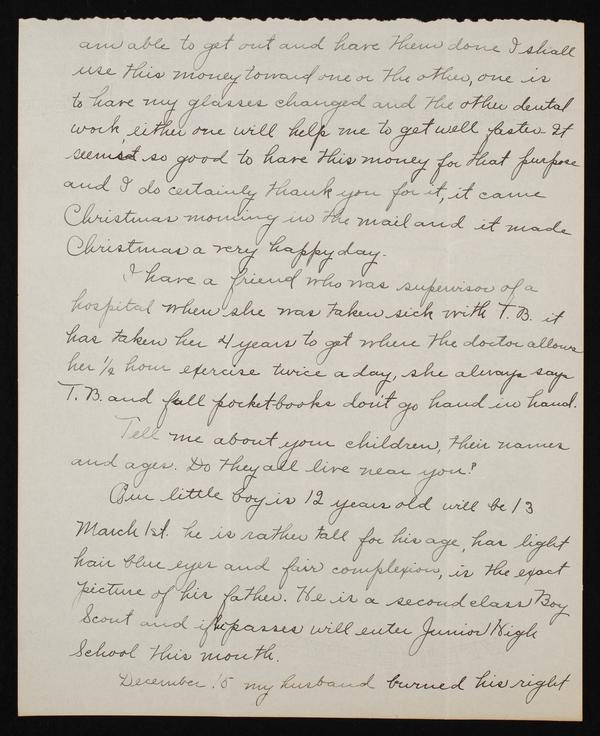 am able to get out and have them done I shall
use this money toward one or the other, one is
to have my glasses changed and the other dental
work either one will help me to get well faster. It
seemed so good to have this money for that purpose
and I do certainly thank you for it, it came
Christmas morning in the mail and it made
Christmas a very happy day.
I have a friend who was supervisor of a
hospital when she was taken sick with T.B. it
has taken her 4 years to get where the doctor allows
her 1/2 hour exercise twice a day, she always says
T.B. and full pocketbooks don't go hand in hand.
Tell me about your children, their names
and ages. Do they all live near you?
Our little boy is 12 years old will be 13
March 1st. he is rather tall for his age, has light
hair blue eyes and fair complexion, is the exact
picture of his father. He is a second class Boy
Scout and if he passes will enter Junior High
School this month.
December 15 my husband burned his right